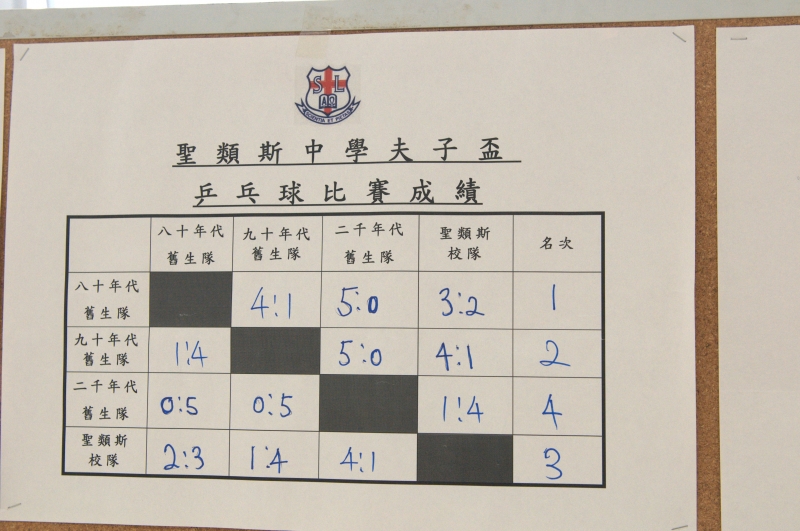 S L
聖類斯中學夫子盃
乒乓球比賽成績
八十年代 九十年代 二千年代 聖類斯 名次
舊生隊 舊生隊 舊生隊 校隊
八十年代 4:1 5:0 3:2 1
舊生隊
九十年代 1:4 5:0 4:1 2
舊生隊
二千年代 0:5 0:5 1:4 4
舊生隊
聖類斯 2:3 1:4 4:1 3
校隊